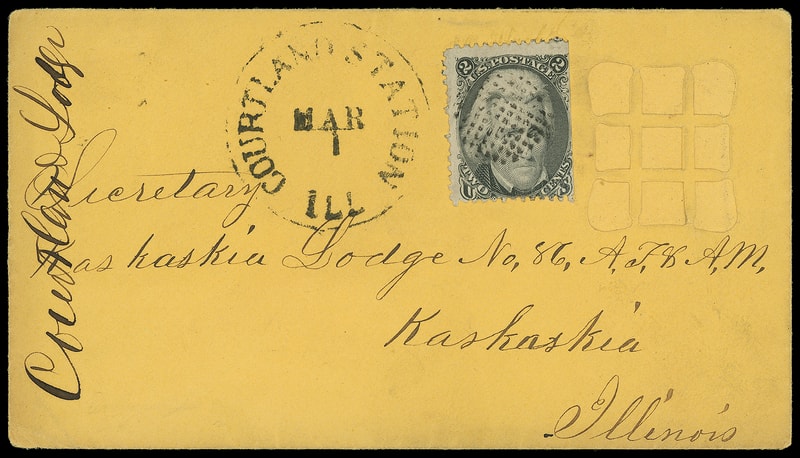 Courtland Lodge
COURTLAND STATION
MAR
1
ILL
2 U.S. POSTAGE 2
TWO CENTS
Secretary
Kaskaskia Lodge No. 86, A. F. & A. M.
Kaskaskia
Illinois